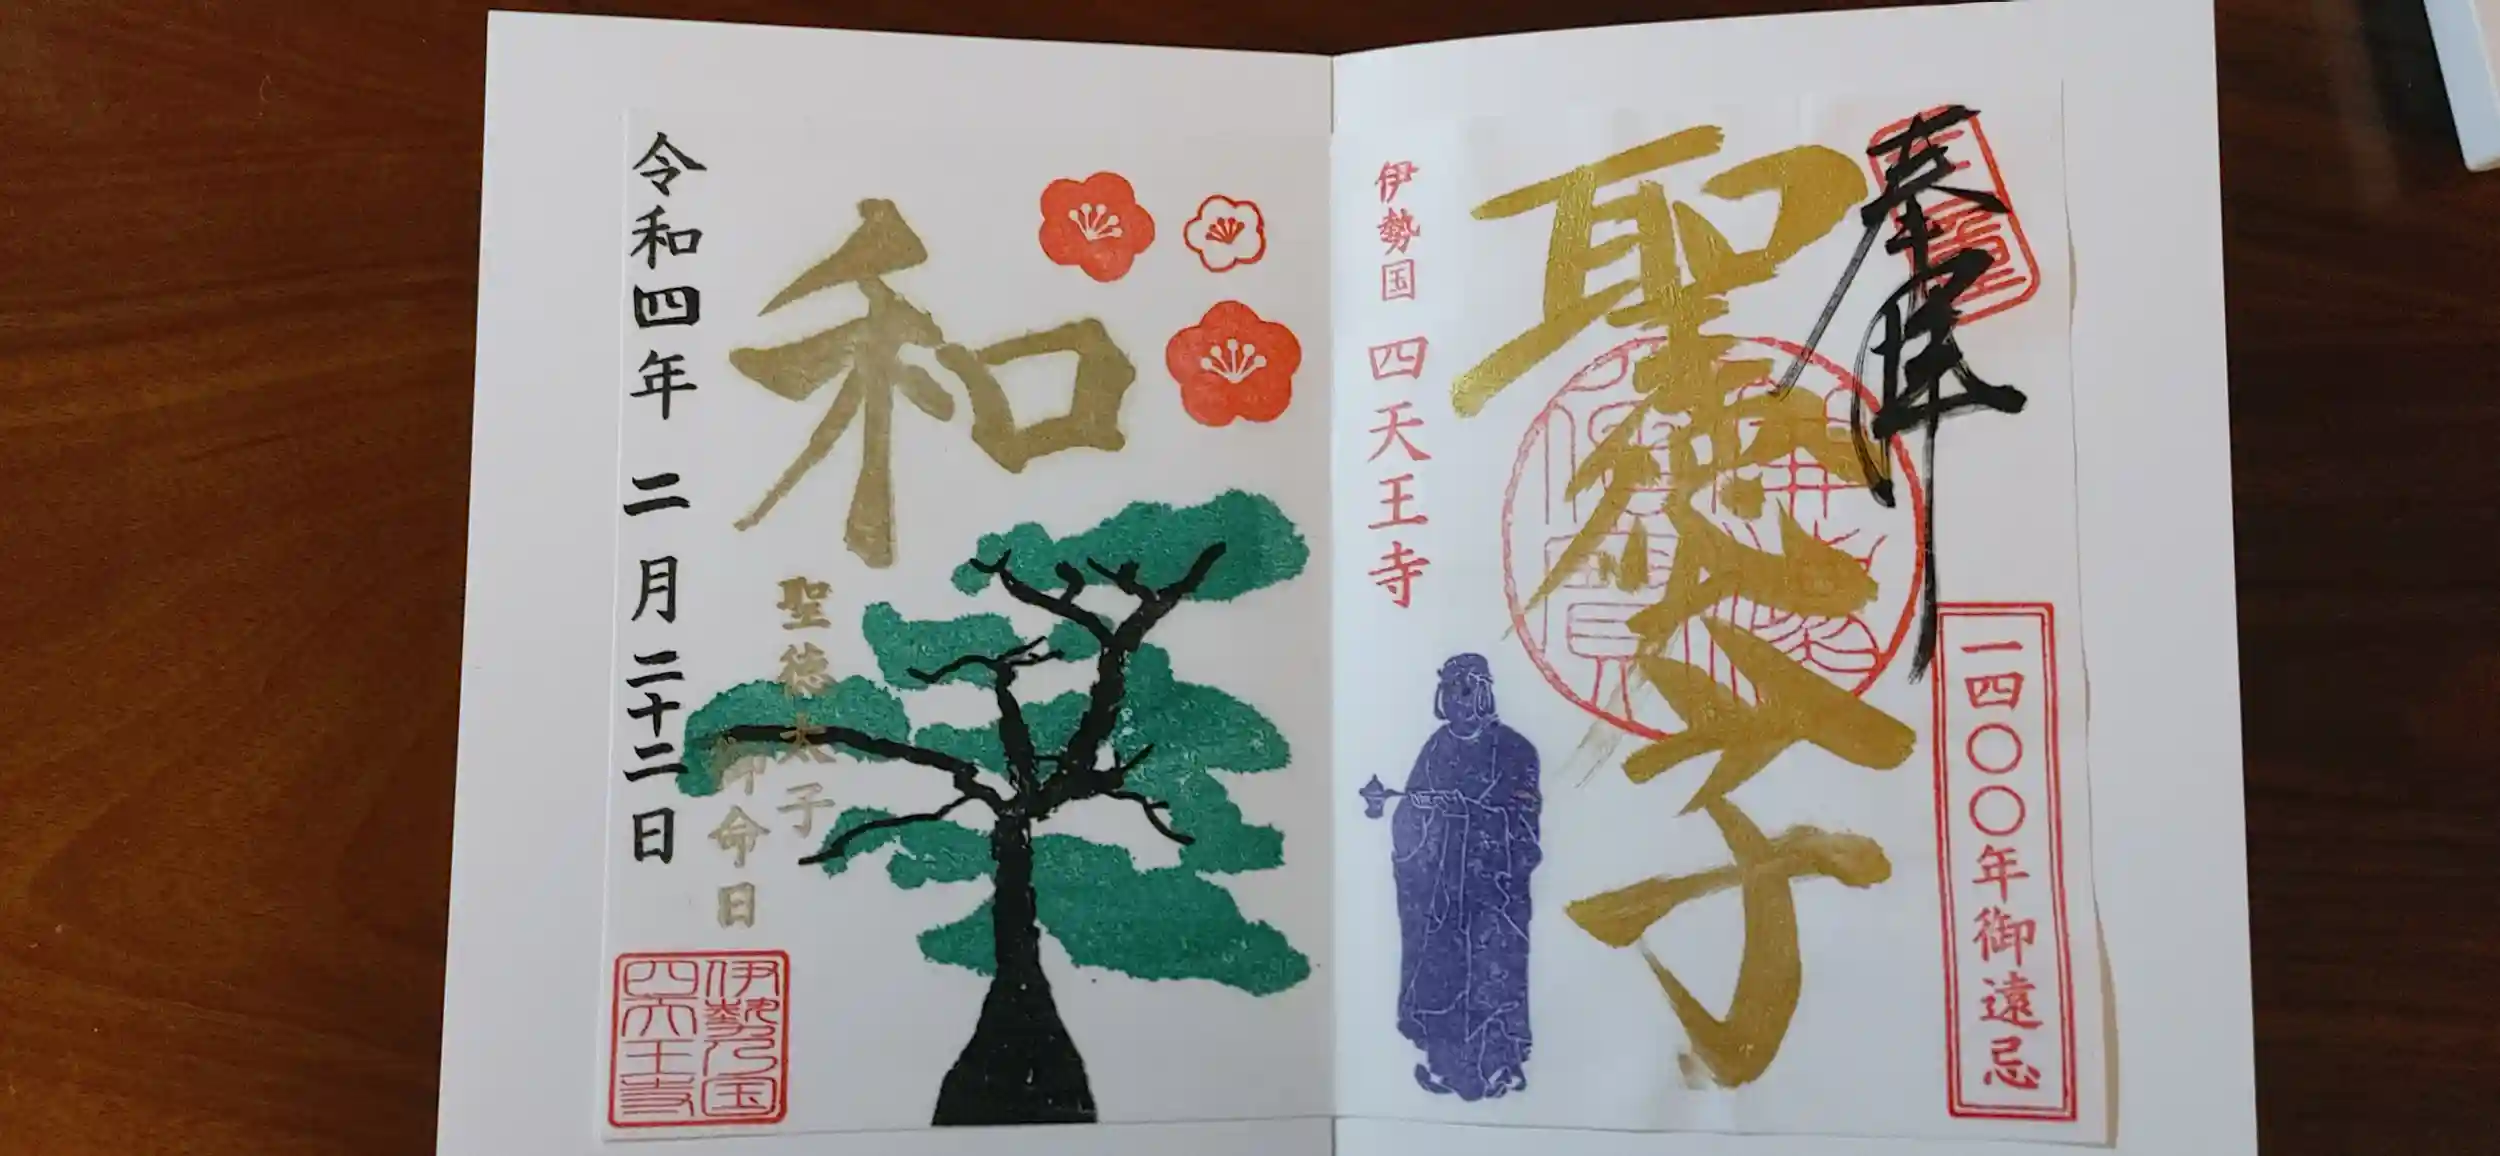 奉拝
聖徳太子
一四〇〇年御遠忌
伊勢国 四天王寺
和
聖徳太子
御命日
令和四年 二月二十二日
伊勢乃国
四天王寺